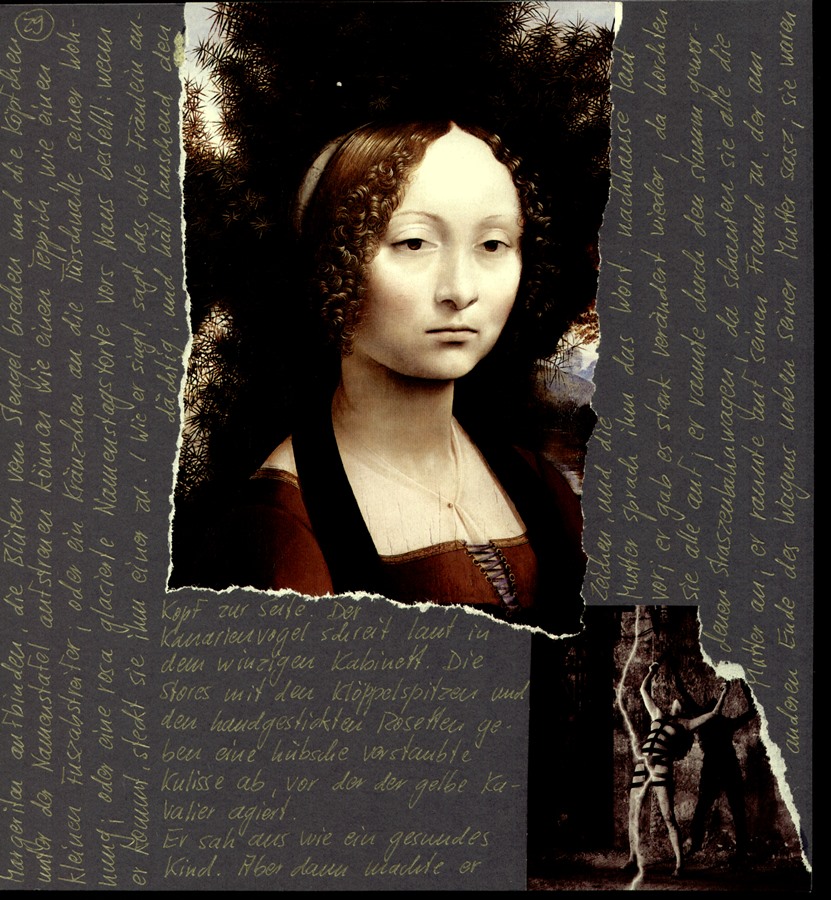 79
Margeriten aufbinden, die Blüten vom Stengel brechen und die Köpfchen
unter der Namenstafel aufstreuen können wie einen Teppich wie einen
kleinen Fuszabstreifer, oder ein Kränzchen an die Türschnalle seiner Woh-
nung, oder eine rosa glacierte Namenstagstorte vors Haus bestellt: wenn
er kommt, steckt sie ihm einer zu. (Wie er singt, sagt das alte Fräulein an-
dächtig, und hält lauschend den
Kopf zur Seite. Der
Kanarienvogel schreit laut in
dem winzigen Kabinett. Die
Stores mit den Klöppelspitzen und
den handgestickten Rosetten ge-
ben eine hübsche verstaubte
Kulisse ab, vor der der gelbe Ka-
valier agiert.
Er sah aus wie ein gesundes
Kind. Aber dann machte er
Zeichen, und die
Mutter sprach ihm das Wort nachhause laut
vor; er gab es stark verändert wieder, da horchten
sie alle auf; er rannte durch den stumm gewor-
denen Straszenbahnwagen, da schauten sie alle die
Mutter an; er rannte auf seinen Freund zu, der am
anderen Ende des Wagens neben seiner Mutter sasz, sie waren